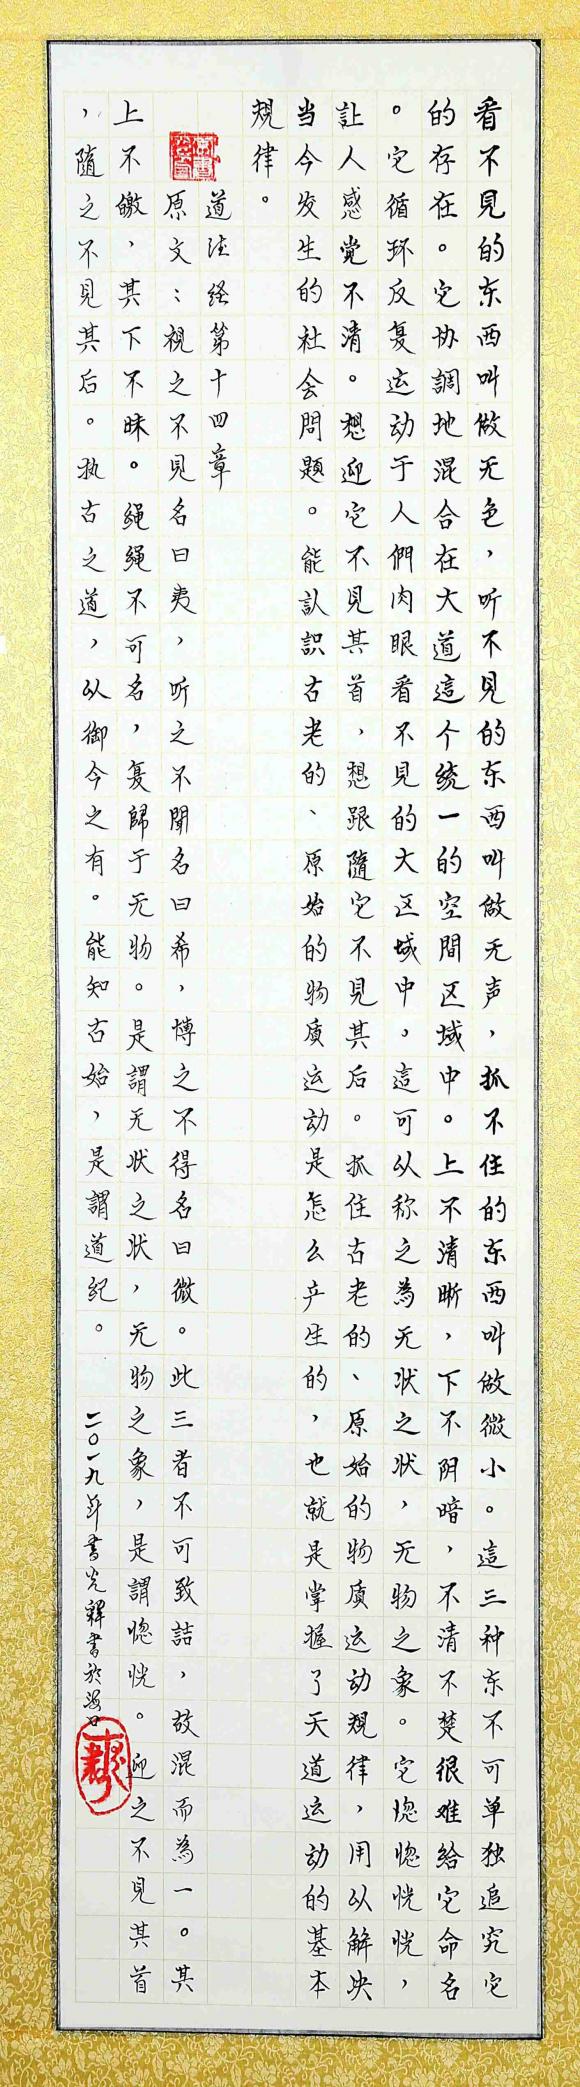 看不見的东西叫做无色，听不見的东西叫做无声，抓不住的东西叫做微小。這三种东不可单独追究它
的存在。它协調地混合在大道這个统一的空間区域中。上不清晰，下不阴暗，不清不楚很难给它命名
。它循环反复运动于人們肉眼看不見的大区域中，這可以称之為无状之状，无物之象。它惚惚恍恍，
让人感觉不清。想迎它不見其首，想跟隨它不見其后。抓住古老的、原始的物质运动規律，用以解决
当今发生的社会問題。能认识古老的、原始的物质运动是怎么产生的，也就是掌握了天道运动的基本
規律。
道法经第十四章
原文：視之不見名曰夷，听之不聞名曰希，博之不得名曰微。此三者不可致詰，故混而為一。其
上不皦，其下不昧。绳绳不可名，复歸于无物。是謂无状之状，无物之象，是謂惚恍。迎之不見其首
，隨之不見其后。执古之道，以御今之有。能知古始，是謂道纪。
二〇一九年書光釋書於海口